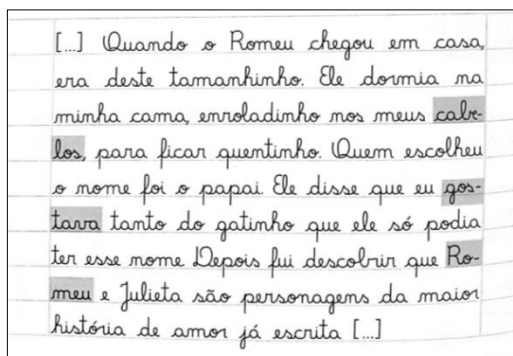 [...] Quando o Romeu chegou em casa,
era deste tamanhinho. Ele dormia na
minha cama, enroladinho nos meus cabe-
los, para ficar quentinho. Quem escolheu
o nome foi o papai. Ele disse que eu gos-
tava tanto do gatinho que ele só podia
ter esse nome Depois fui descobrir que Ro-
meu e Julieta são personagens da maior
história de amor já escrita [...]